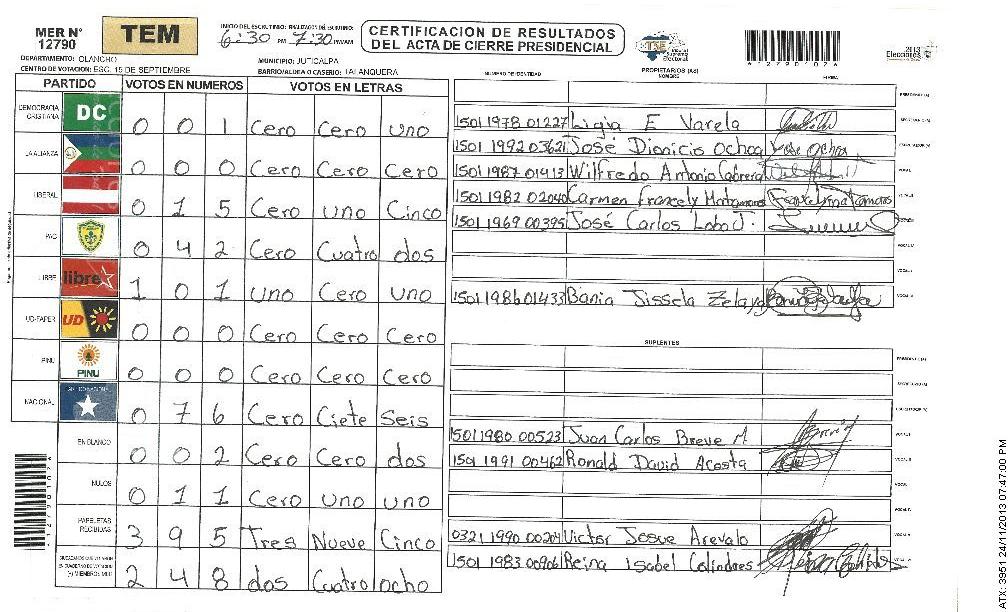 MER N° 12790
TEM
INICIO DEL ESCRUTINIO: FINALIZACION DEL ESCRUTINIO:
6:30 PM 7:30 PM/AM
CERTIFICACION DE RESULTADOS
DEL ACTA DE CIERRE PRESIDENCIAL
TSE Tribunal Supremo Electoral
2013
Elecciones
DEPARTAMENTO: OLANCHO
MUNICIPIO: JUTICALPA
CENTRO DE VOTACION: ESC. 15 DE SEPTIEMBRE
BARRIO/ALDEA O CASERIO: TALANQUERA
PARTIDO VOTOS EN NUMEROS VOTOS EN LETRAS
NUMERO DE IDENTIDAD PROPIETARIOS (AS) NOMBRE FIRMA
DEMOCRACIA CRISTIANA DC 0 0 1 Cero Cero uno
LA ALIANZA 0 0 0 Cero Cero Cero
LIBERAL 0 1 5 Cero uno Cinco
PAC 0 4 2 Cero Cuatro dos
LIBRE libre 1 0 1 uno Cero uno
UD-FAPER UD 0 0 0 Cero Cero Cero
PINU PINU 0 0 0 Cero Cero Cero
NACIONAL 0 7 6 Cero Ciete Seis
EN BLANCO 0 0 2 Cero Cero dos
NULOS 0 1 1 Cero uno uno
PAPELETAS RECIBIDAS 3 9 5 Tres Nueve Cinco
CIUDADANOS QUE VOTARON EN CUADERNO DE VOTACION (+) MIEMBROS MER 2 4 8 dos Cuatro ocho
PRESIDENTE(A)
1501 1978 01227 Ligia E Varela SECRETARIO(A)
1501 1992 03621 José Dionicio Ochoa Jose Ochoa ESCRUTADOR(A)
1501 1987 01413 Wilfredo Antonio Cabrera VOCAL I
1501 1982 02040 Carmen Francely Matamoros
1501 1969 00395 José Carlos Lobo
1501 1986 01433 Bania Jissela Zelaya
SUPLENTES
PRESIDENTE(A)
SECRETARIO(A)
ESCRUTADOR(A)
1501 1980 00523 Juan Carlos Breve M
1501 1991 00462 Ronald David Acosta
0321 1990 00204 Victor Josue Arevalo
1501 1983 00906 Reina Isabel Colindres
*12790102*
ATX: 3951 24/11/2013 07:47:00 PM